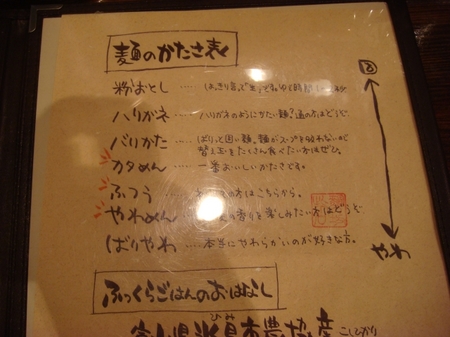 麺のかたさ表
固
粉おとし……はっきり言って"生"です。ゆで時間
ハリガネ……ハリガネのようにかたい麺?通の方はどうぞ。
バリかた……ばりっと固い麺。麺がスープを吸わないが
替え玉をたくさん食べたい方はぜひ。
カタめん……一番おいしいかたさです。
ふつう……の方はこちらから。
やわめん……の香りを楽しみたい方はどうぞ
ばりやわ……本当にやわらかいのが好きな方。
やわ
ふっくらごはんのおはなし
ひみ
富山県氷見市農協産
こしひかり